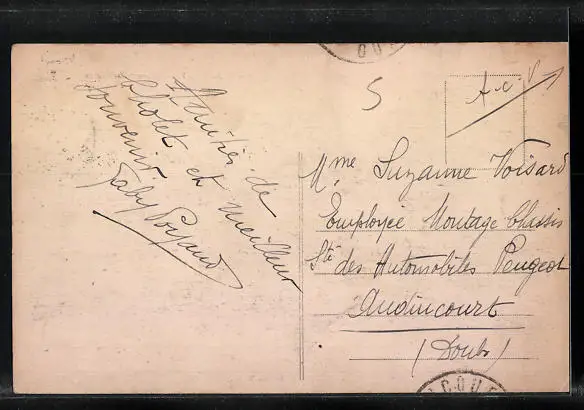 Amitiés de
Cholet et meilleur
souvenir
Gaby
5
A.C.V.
Mme Suzanne Voisard
Employée Montage Chassis
Sté des Automobiles Peugeot
Audincourt
(Doubs)
COU
COU